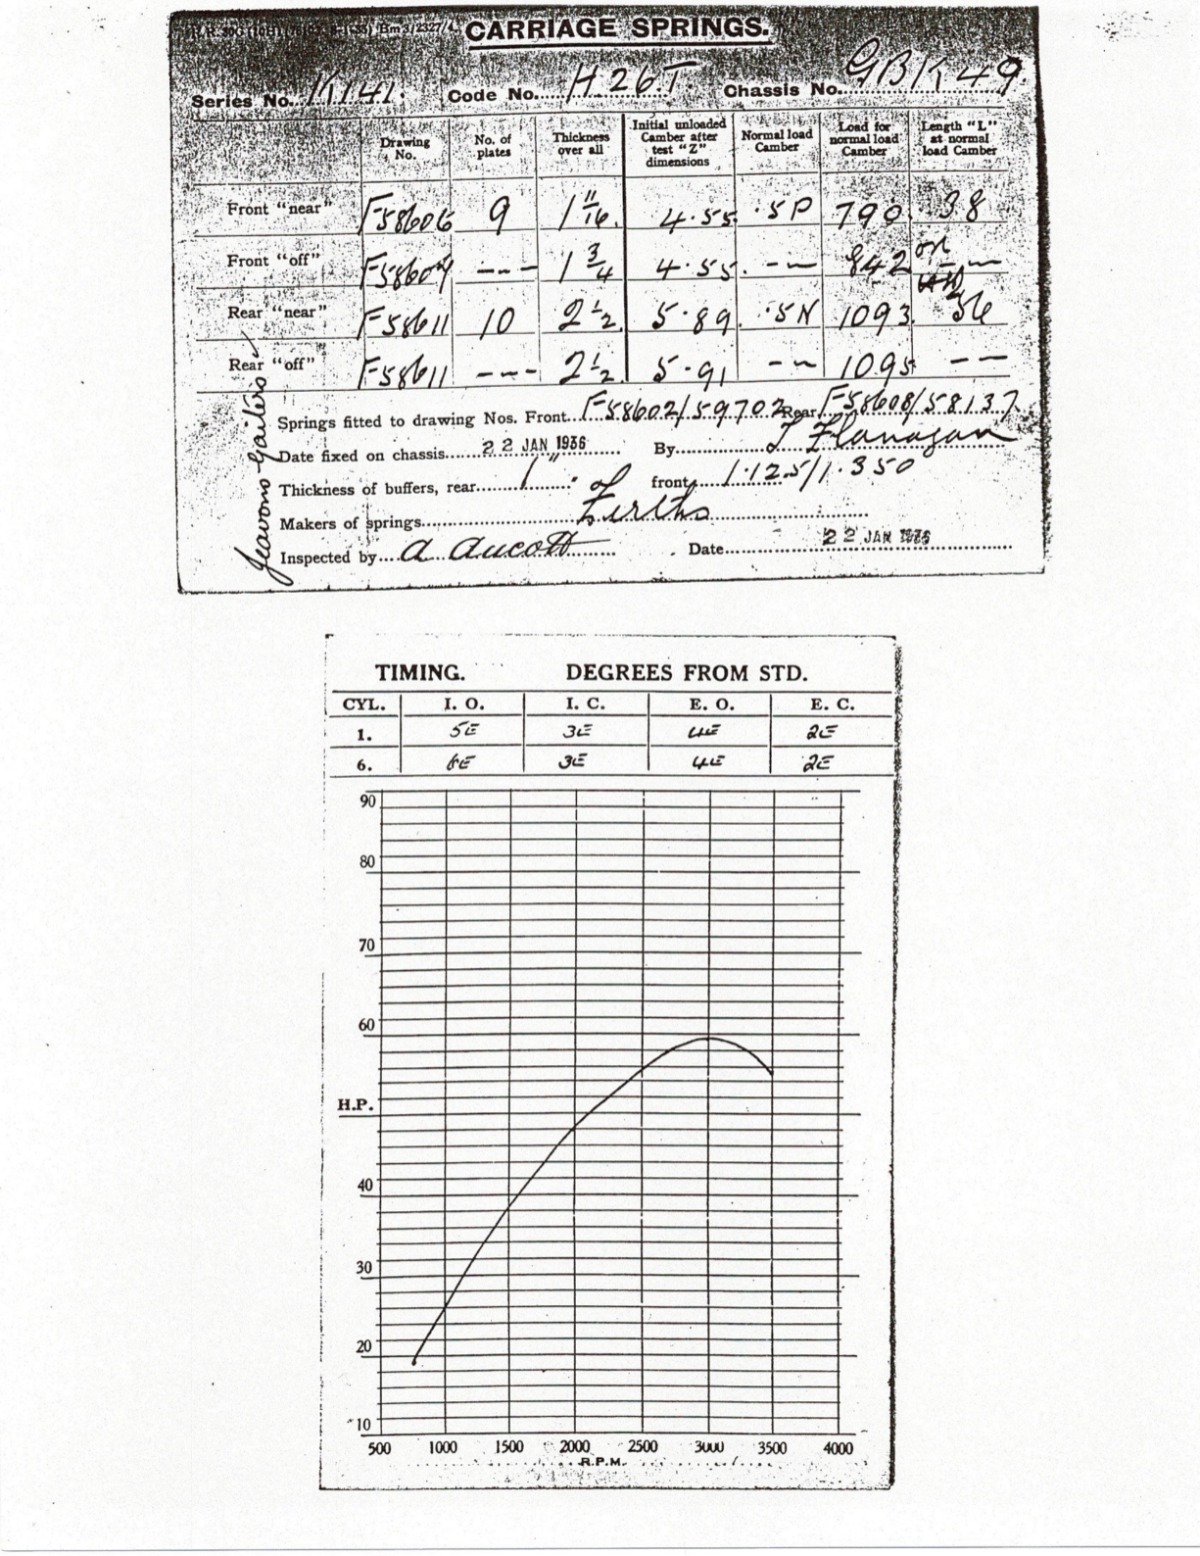 CARRIAGE SPRINGS.
Series No. K141. Code No. H26T Chassis No. GBK49
Drawing No. No. of plates Thickness over all Initial unloaded Camber after test "Z" dimensions Normal load Camber Load for normal load Camber Length "L" at normal load Camber
Front "near" F58606 9 1 11/16. 4.55. .5P 790. 38
Front "off" --- 1 3/4 4.55. -- 842 --
Rear "near" F58611 10 2 1/2 5.89. .5N 1093. 56
Rear "off" F58611 --- 2 1/2 5.91 -- 1095 --
Springs fitted to drawing Nos. Front. F58602/59702 Rear F58608/58137
Date fixed on chassis 22 JAN 1936 By T Flanagan
Thickness of buffers, rear 1" front 1.125/1.350
Makers of springs Firths
Inspected by A Aucott Date 22 JAN 1936
Jeavons Gaiters
TIMING. DEGREES FROM STD.
CYL. I. O. I. C. E. O. E. C.
1. 5E 3E 4E 2E
6. 6E 3E 4E 2E
90
80
70
60
H.P.
40
30
20
10
500 1000 1500 2000 2500 3000 3500 4000
R.P.M.